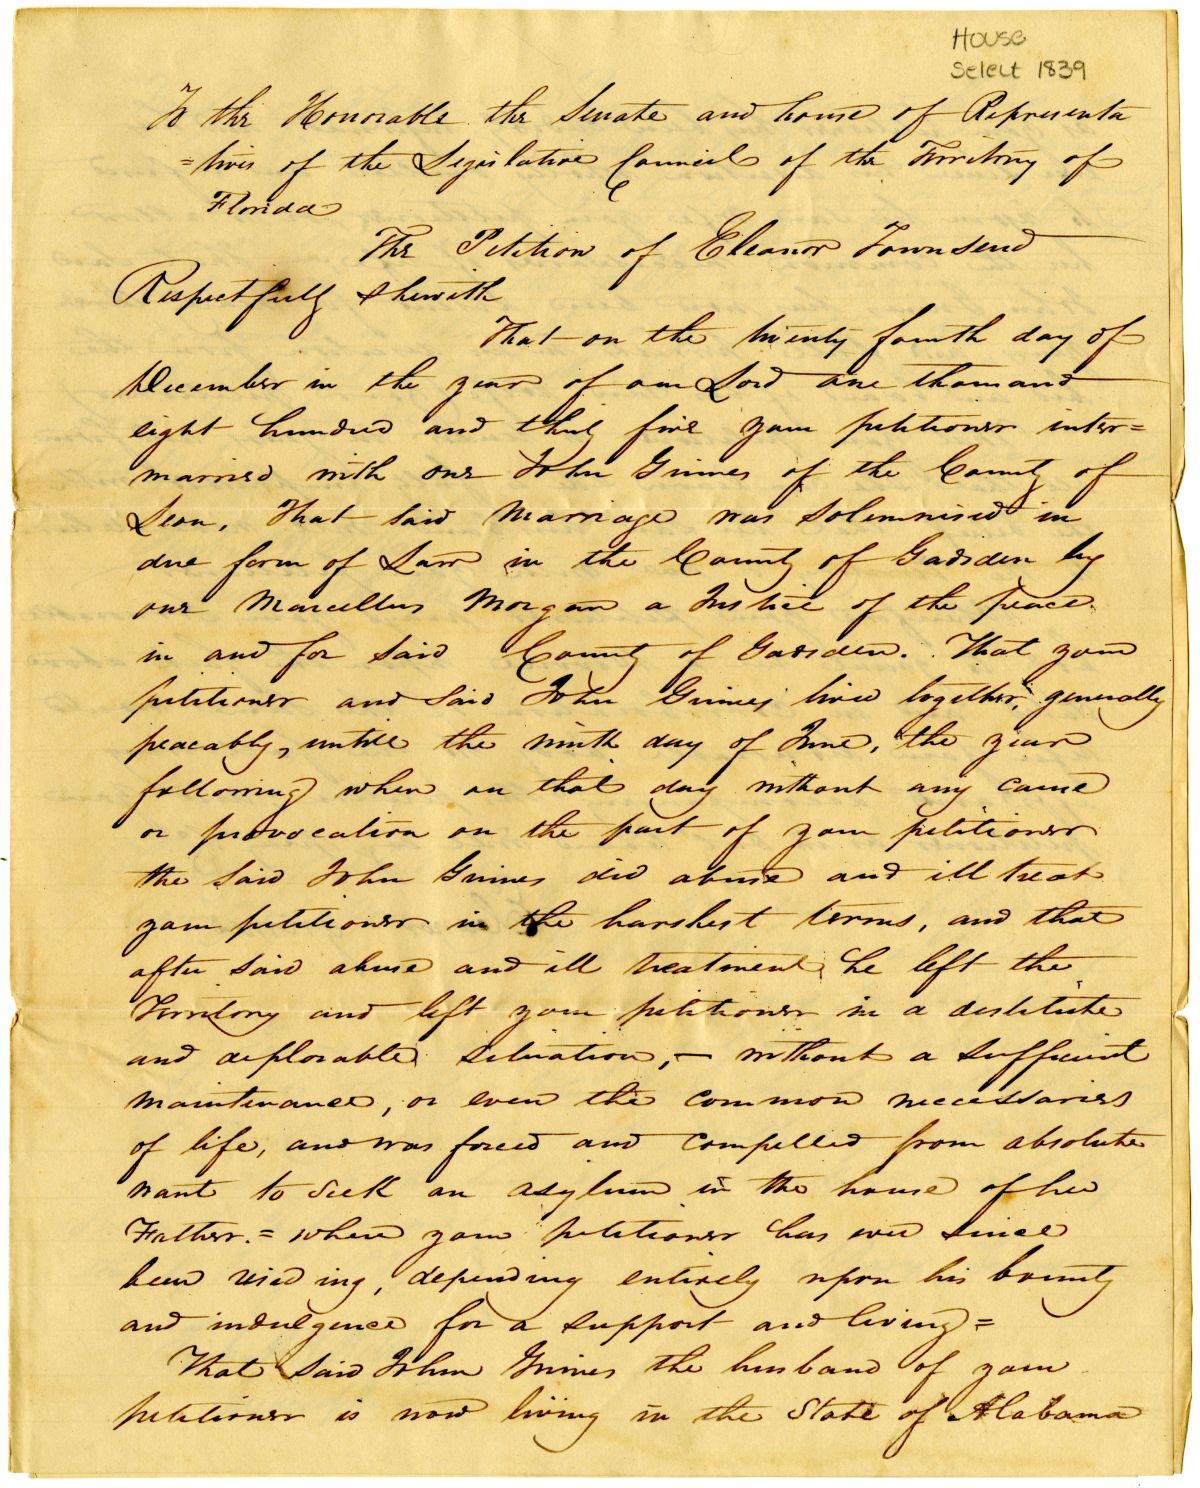 House
Select 1839
To the Honorable the Senate and house of Representa
=tives of the Legislative Council of the Territory of
Florida
The Petition of Eleanor Townsend
Respectfully sheweth
That on the twenty fourth day of
December in the year of our Lord one thousand
eight hundred and thirty five your petitioner inter=
married with one John Grimes of the County of
Leon, That said Marriage was solemnised in
due form of Law in the County of Gadsden by
one Marcellus Morgan a Justice of the peace
in and for said County of Gadsden. That your
petitioner and said John Grimes lived together, generally
peacably, untill the ninth day of June, the year
following when on that day without any cause
or provocation on the part of your petitioner
the said John Grimes did abuse and ill treat
your petitioner in the harshest terms, and that
after said abuse and ill treatment he left the
Territory and left your petitioner in a destitute
and deplorable situation, – without a sufficient
maintenance, or even the common neccessaries
of life, and was forced and compelled from absolute
want to seek an asylum in the house of her
Father. = where your petitioner has ever since
been resid ing, depending entirely upon his bounty
and indulgence for a support and living =
That said John Grimes the husband of your
petitioner is now living in the State of Alabama